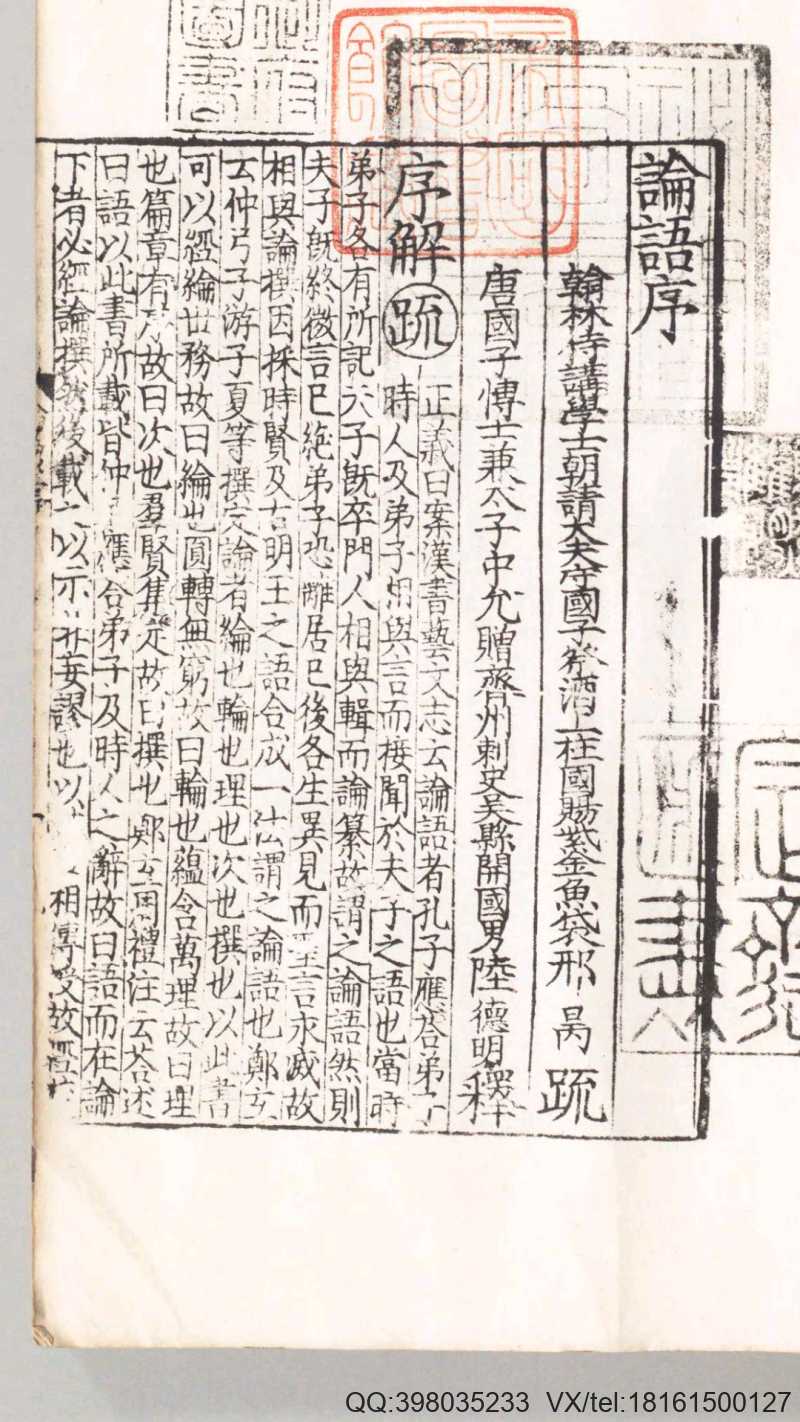 論語序
翰林侍講學士朝請大夫守國子祭酒上柱國賜紫金魚袋邢昺疏
唐國子博士兼太子中允贈齊州刺史吳縣開國男陸德明釋
序解疏
正義曰案漢書藝文志云論語者孔子應荅弟子
時人及弟子相與言而接聞於夫子之語也當時
弟子各有所記夫子旣卒門人相與輯而論纂故謂之論語然則
夫子旣終微言已絕弟子恐離居已後各生異見而聖言永滅故
相與論撰因採時賢及古明王之語合成一法謂之論語也鄭玄
云仲弓子游子夏等撰定論者綸也輪也理也次也撰也以此書
可以經綸世務故曰綸也圓轉無窮故曰輪也蘊含萬理故曰理
也篇章有序故曰次也羣賢集定故曰撰也鄭玄周禮注云荅述
曰語以此書所載皆仲應荅弟子及時人之辭故曰語而在論
下者必經論撰然後載之以示非妄謬也以相傳受故經
QQ:398035233 VX/tel:18161500127